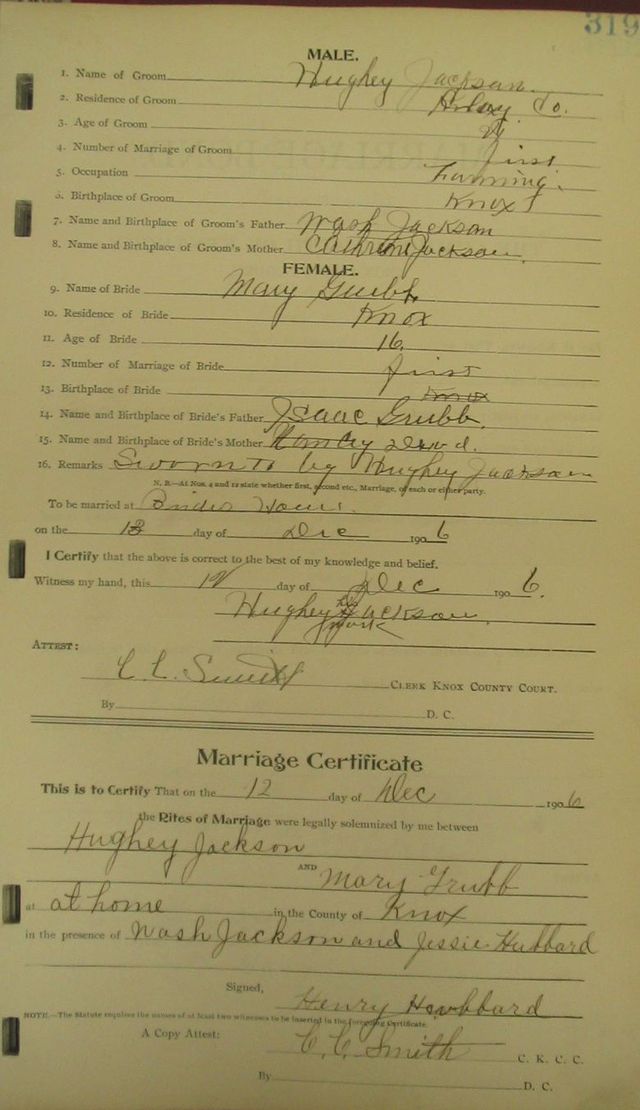 319
MALE.
1. Name of Groom Hughey Jackson
2. Residence of Groom Co.
3. Age of Groom
4. Number of Marriage of Groom first
5. Occupation Farming
6. Birthplace of Groom Knox
7. Name and Birthplace of Groom's Father Wash Jackson
8. Name and Birthplace of Groom's Mother Jackson
FEMALE.
9. Name of Bride Mary Grubb
10. Residence of Bride Knox
11. Age of Bride 16
12. Number of Marriage of Bride first
13. Birthplace of Bride Knox
14. Name and Birthplace of Bride's Father Isaac Grubb
15. Name and Birthplace of Bride's Mother
16. Remarks Sworn to by Hughey Jackson
N. B.—At Nos. 4 and 12 state whether first, second etc., Marriage, of each or either party.
To be married at Brides Home
on the 13 day of Dec 1906
I Certify that the above is correct to the best of my knowledge and belief.
Witness my hand, this 12 day of Dec 1906.
Hughey his x mark Jackson
ATTEST:
C. C. Smith CLERK KNOX COUNTY COURT.
By D. C.
Marriage Certificate
This is to Certify That on the 12 day of Dec 1906
the Rites of Marriage were legally solemnized by me between
Hughey Jackson
AND Mary Grubb
at at home in the County of Knox
in the presence of Wash Jackson and Jessie Hubbard
Signed, Henry Hubbard
NOTE.—The Statute requires the names of at least two witnesses to be inserted in the foregoing Certificate.
A Copy Attest: C. C. Smith C. K. C. C.
By D. C.